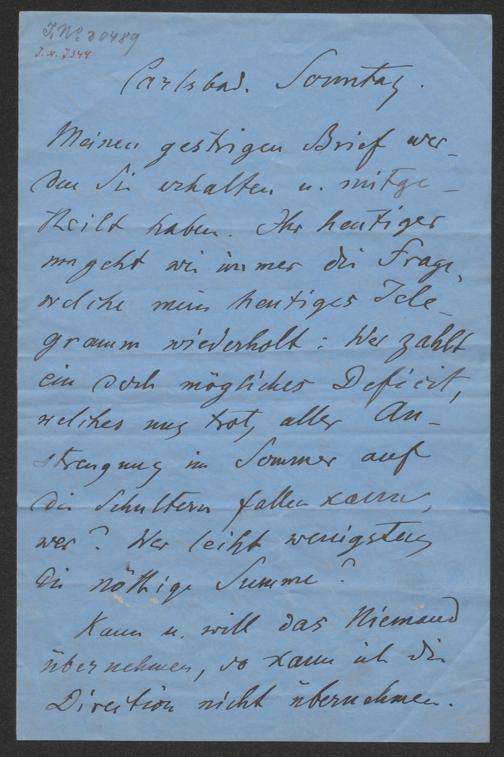 J. No 30489
J. N. 7344
Carlsbad. Sonntag.
Meinen gestrigen Brief wer-
den Sie erhalten u. mitge-
theilt haben. Ihr heutiger
umgeht wie immer die Frage,
welche mein heutiges Tele-
gramm wiederholt: Wer zahlt
ein doch mögliches Deficit,
welches uns trotz aller An-
strengung im Sommer auf
die Schultern fallen kann,
wer? Wer leiht wenigstens
die nöthige Summe?
Kann u. will das Niemand
übernehmen, so kann ich die
Direction nicht übernehmen.